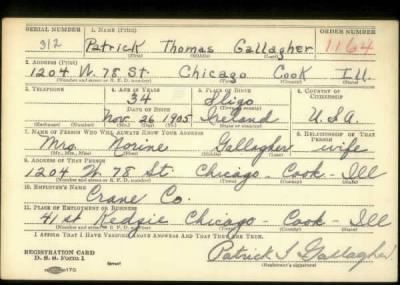 SERIAL NUMBER 1. NAME (Print) ORDER NUMBER
312 Patrick Thomas Gallagher 1164
(First) (Middle) (Last)
2. ADDRESS (Print)
1204 W. 78 St. Chicago Cook Ill.
(Number and street or R. F. D. number) (Town) (County) (State)
3. TELEPHONE 4. AGE IN YEARS 5. PLACE OF BIRTH 6. COUNTRY OF CITIZENSHIP
34 Sligo
DATE OF BIRTH (Town or county)
Nov. 26 1905 Ireland U.S.A.
(Exchange) (Number) (Mo.) (Day) (Yr.) (State or country)
7. NAME OF PERSON WHO WILL ALWAYS KNOW YOUR ADDRESS 8. RELATIONSHIP OF THAT PERSON
Mrs. Norine Gallagher wife
(Mr., Mrs., Miss) (First) (Middle) (Last)
9. ADDRESS OF THAT PERSON
1204 W. 78 St. Chicago - Cook - Ill
(Number and street or R. F. D. number) (Town) (County) (State)
10. EMPLOYER'S NAME
Crane Co.
11. PLACE OF EMPLOYMENT OR BUSINESS
41 st Kedzie Chicago - Cook - Ill
(Number and street or R. F. D. number) (Town) (County) (State)
I AFFIRM THAT I HAVE VERIFIED ABOVE ANSWERS AND THAT THEY ARE TRUE.
REGISTRATION CARD
D. S. S. Form 1 Patrick T Gallagher
(Registrant's signature)